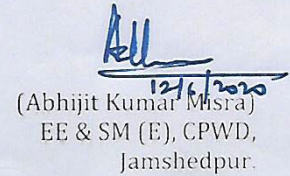 12/6/2020
(Abhijit Kumar Misra)
EE & SM (E), CPWD,
Jamshedpur.